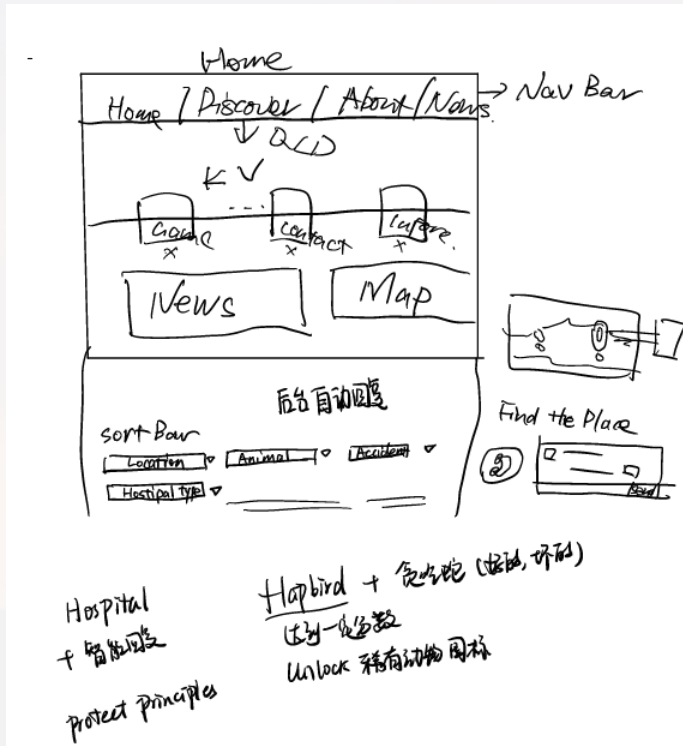 Home
Home / Discover / About / News
→ Nav Bar
KV
Game
Contact
News
Map
后台自动回复
Sort Bar
Location
Animal
Accident
Hostipal type
Find the Place
Send
Hospital
+ 智能回复
protect principles
Hapbird + 贪吃蛇 (好的, 坏的)
达到一定分数
Unlock 稀有动物图标